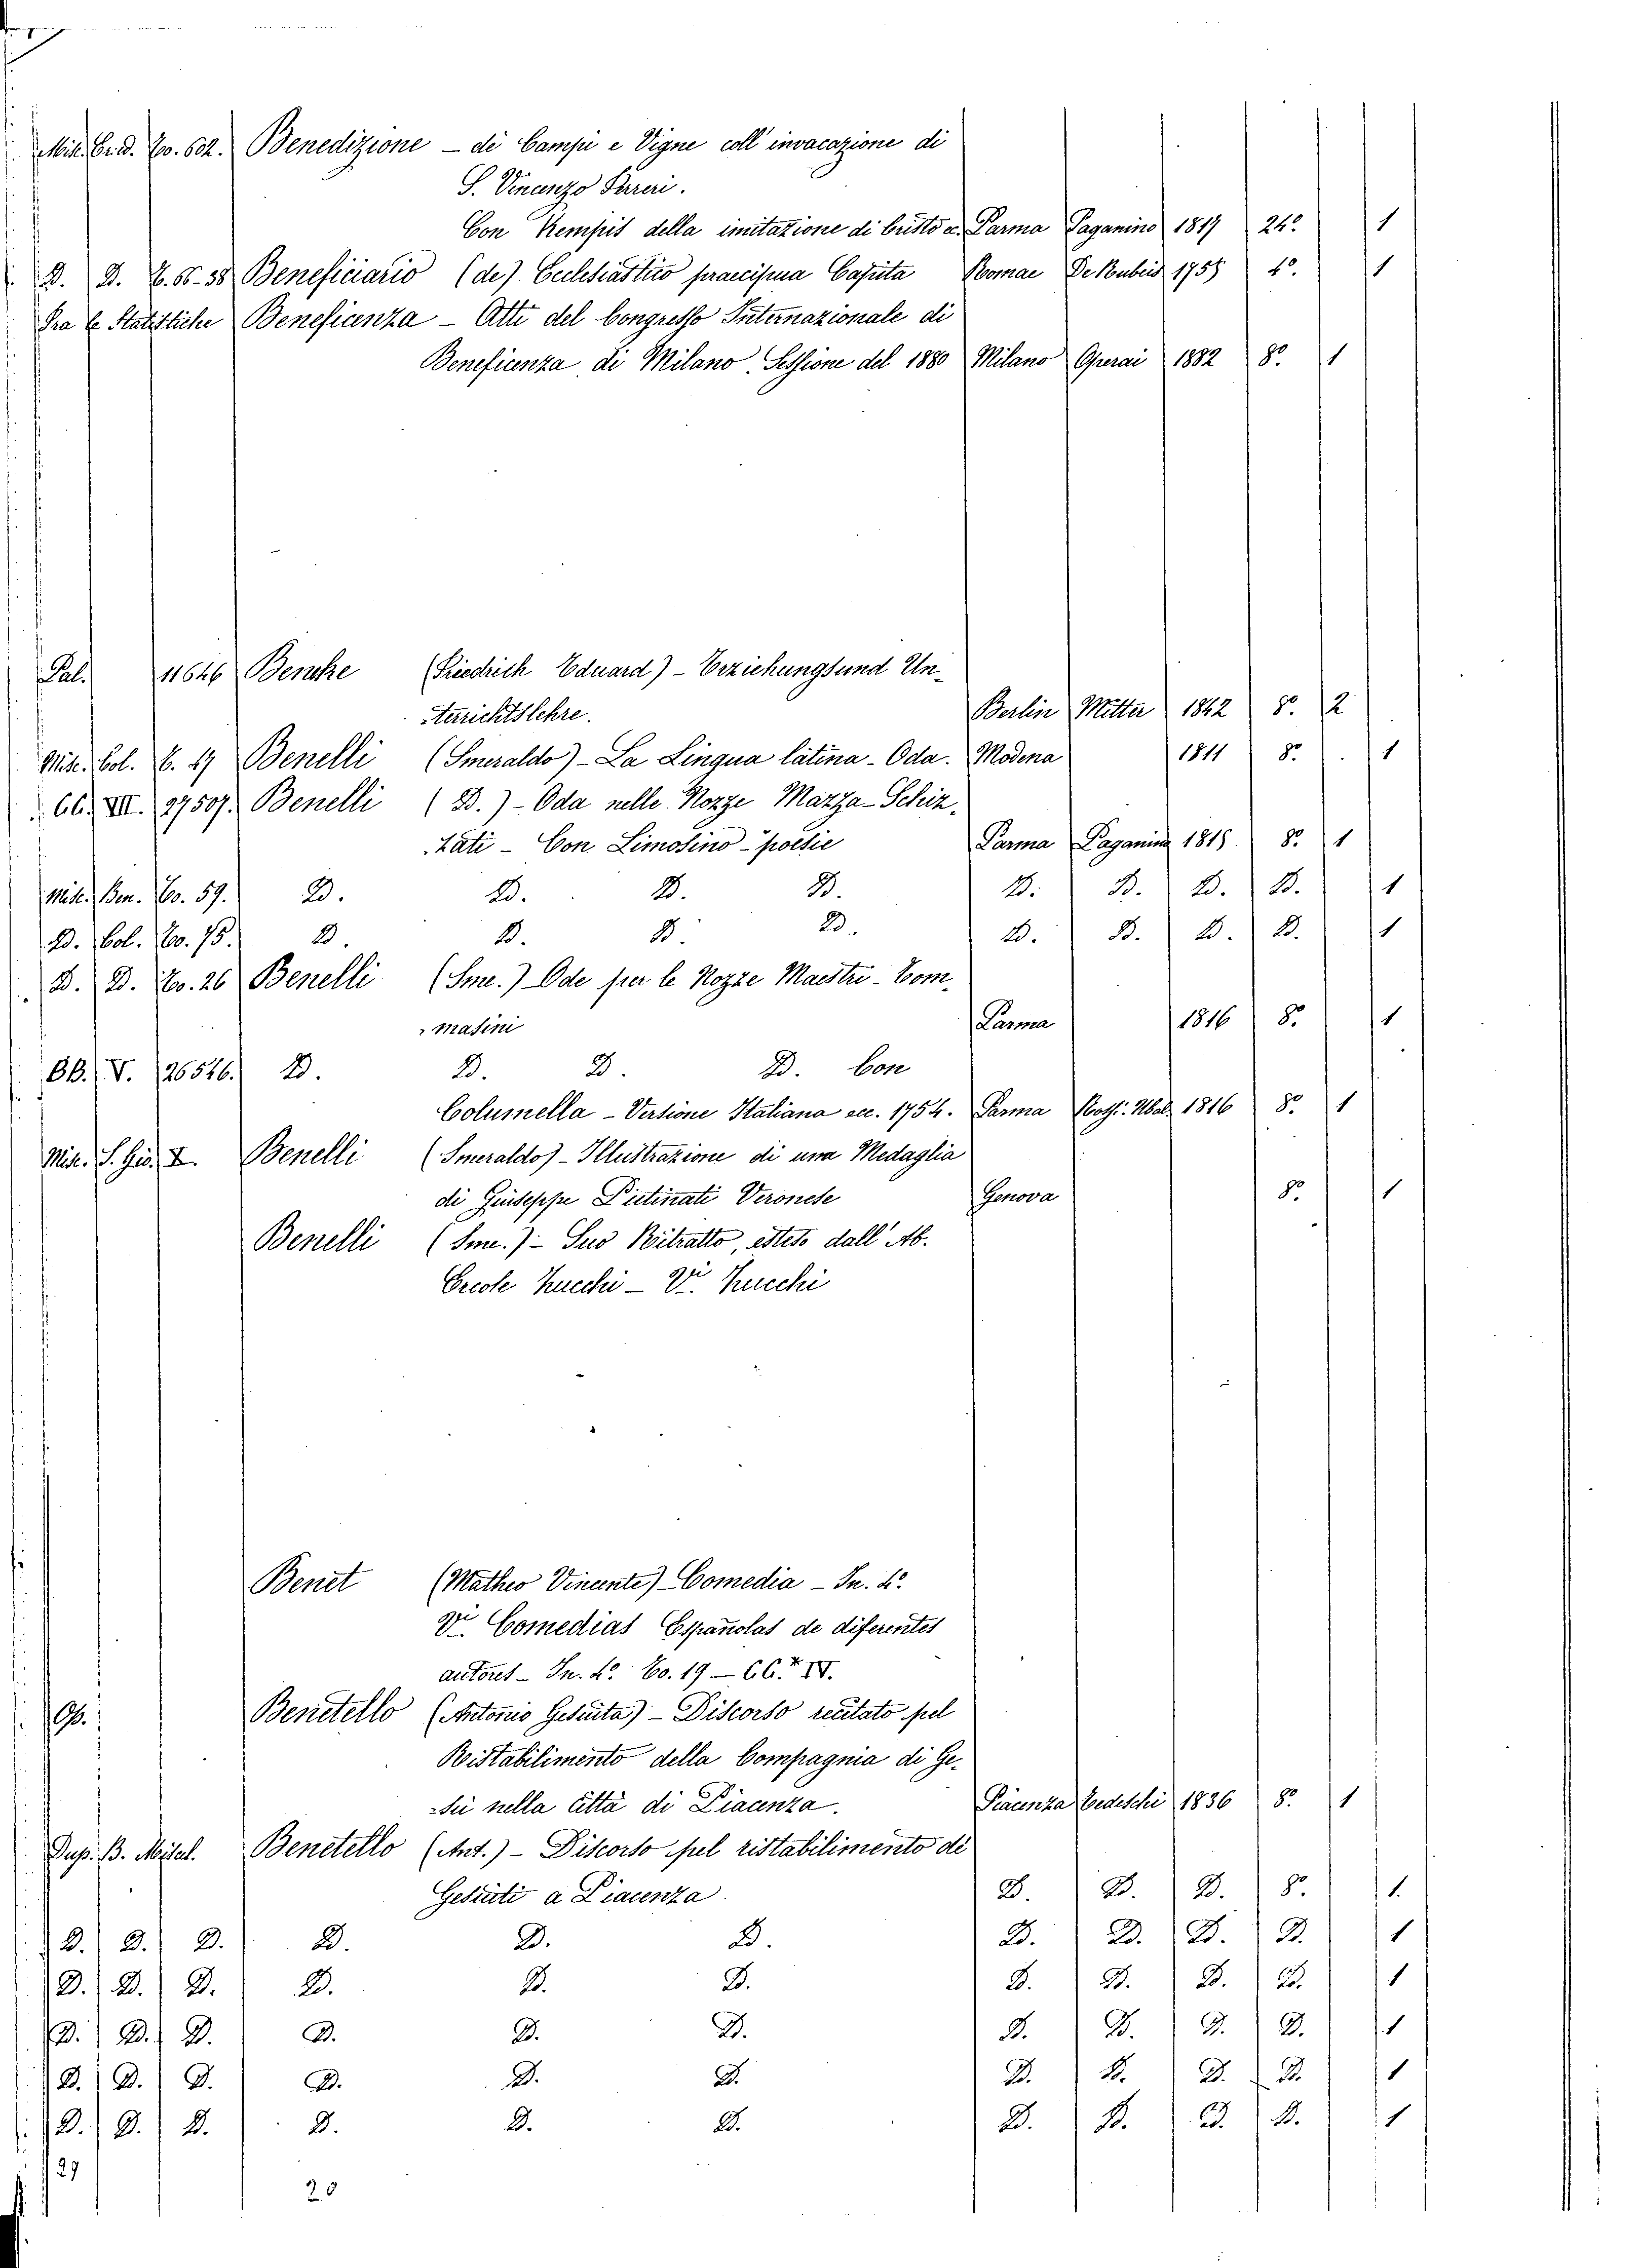 Misc. Erud. To. 602. Benedizione – di Campi e Vigne coll' invacazione di
S. Vincenzo Fereri.
Con Kempis della imitazione di Cristo ec. Parma Paganino 1817 24° 1
D. D. T. 56-38 Beneficiario (de) Ecclesiastico praecipua Capita Romae De Rubeis 1755 4° 1
Fra le Statistiche Beneficenza – Atti del Congresso Internazionale di
Beneficenza di Milano. Sessione del 1880 Milano Operai 1882 8° 1
Pal. 11646 Beneke (Friedrich Eduard) – Erziehungs und Un-
terrichtslehre. Berlin Mitter 1842 8° 2
Misc. Col. T. 47 Benelli (Smeraldo) – La Lingua latina – Oda. Modena 1811 8° 1
CC. VII. 27507. Benelli (D.) – Oda nelle Nozze Mazza-Schiz-
zati – Con Limosino – poesie Parma Paganino 1815 8° 1
Misc. Ben. To. 59. D. D. D. D. D. D. D. D. 1
D. Col. To. 75. D. D. D. D. D. D. D. D. 1
D. D. To. 26 Benelli (Sme.) Ode per le Nozze Maestri – Tom-
masini Parma 1816 8° 1
BB. V. 26546. D. D. D. D. Con
Columella – Versione Italiana ecc. 1754. Parma Rossi-Ubal. 1816 8° 1
Misc. S. Gio. X. Benelli (Smeraldo) – Illustrazione di una Medaglia
di Giuseppe Pistinati Veronese Genova 8° 1
Benelli (Sme.) – Suo Ritratto, esteso dall' Ab.
Ercole Zucchi – Vi. Zucchi
Benet (Matheo Vincente) – Comedia – In. 4°.
Vi. Comedias Espanolas de diferentes
autores – In. 4° To. 19 – CC.* IV.
Op. Benetello (Antonio Gesuita) – Discorso recitato pel
Ristabilimento della Compagnia di Ge-
sù nella Città di Piacenza. Piacenza Tedeschi 1836 8° 1
Dup. B. Misel. Benetello (Ant.) – Discorso pel ristabilimento de
Gesuiti a Piacenza D. D. D. 8° 1
D. D. D. D. D. D. D. D. D. D. 1
D. D. D. D. D. D. D. D. D. D. 1
D. D. D. D. D. D. D. D. D. D. 1
D. D. D. D. D. D. D. D. D. D. 1
D. D. D. D. D. D. D. D. D. D. 1
29
20